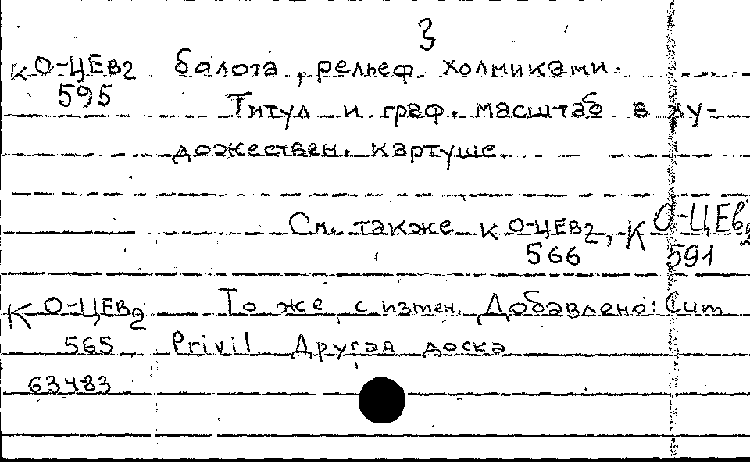 3
К О-ЦЕв2 болота, рельеф холмиками.
595 Титул и граф. масштаб в ху-
дожествен. картуше
См. также К О-ЦЕВ2, К О-ЦЕв2
566 591
К О-ЦЕв2 То же, с измен. Добавлено: Cum
565 Privil Другая доска
63483